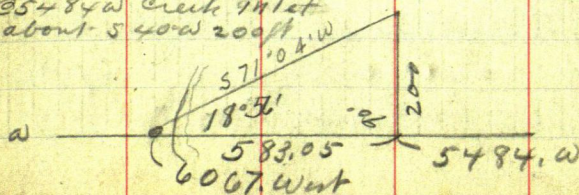 @5484 W Creek Inlet
about S 40 W 200 ft
S 71° 04' W
18° 56'
200
90°
a
583.05
5484. W
6067. West